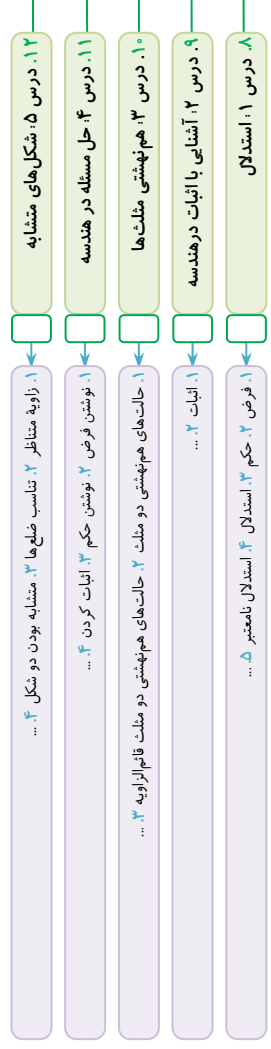 ۸. درس ۱: استدلال
۱. فرض ۲. حکم ۳. استدلال ۴. استدلال نامعتبر ۵. ...
۹. درس ۲: آشنایی با اثبات درهندسه
۱. اثبات ۲. ...
۱۰. درس ۳: هم‌نهشتی مثلث‌ها
۱. حالت‌های هم‌نهشتی دو مثلث ۲. حالت‌های هم‌نهشتی دو مثلث قائم‌الزاویه ۳. ...
۱۱. درس ۴: حل مسئله در هندسه
۱. نوشتن فرض ۲. نوشتن حکم ۳. اثبات کردن ۴. ...
۱۲. درس ۵: شکل‌های متشابه
۱. زاویهٔ متناظر ۲. تناسب ضلع‌ها ۳. متشابه بودن دو شکل ۴. ...